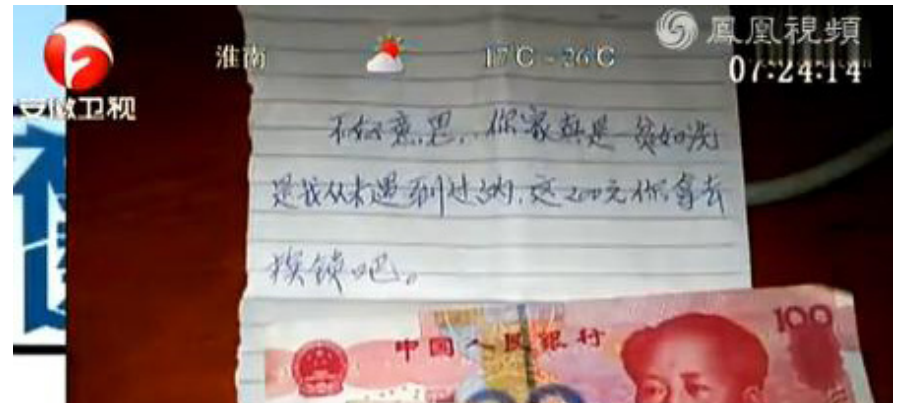 安徽卫视
淮南
17℃~26℃
鳳凰視頻
07:24:14
不好意思，你家真是一贫如洗
是我从未遇到过的，这200元你拿去
换锁吧。
中国人民银行
100